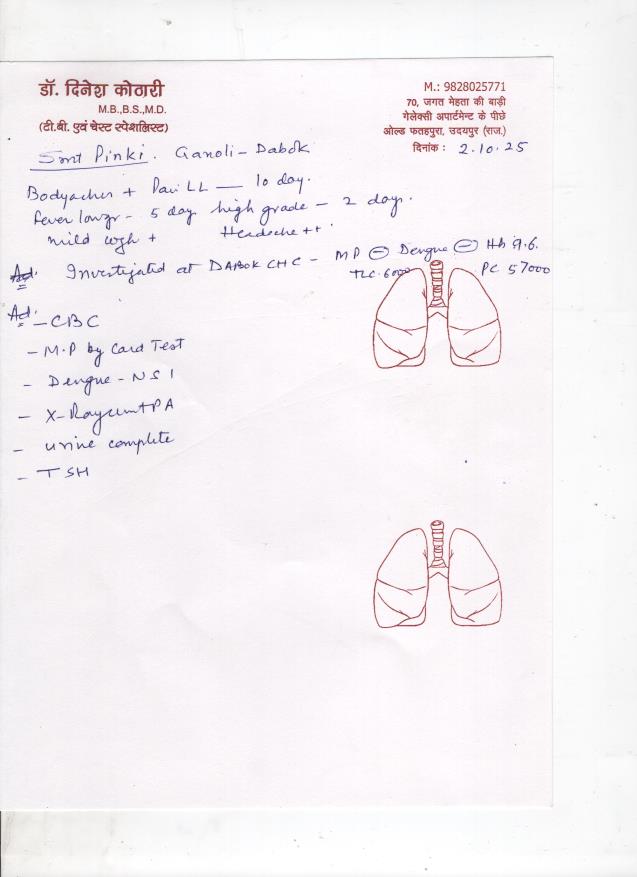 डॉ. दिनेश कोठारी
M.B.,B.S.,M.D.
(टी.बी. एवं चेस्ट स्पेशलिस्ट)
M.: 9828025771
70, जगत मेहता की बाड़ी
गेलेक्सी अपार्टमेन्ट के पीछे
ओल्ड फतहपुरा, उदयपुर (राज.)
दिनांक : 2.10.25
Smt Pinki. Ganoli - Dabok
Bodyaches + Pain LL — 10 day.
fever low gr - 5 day high grade - 2 day.
mild cough + Headache ++
Ad: Investigated at DABOK CHC - MP ⊖ Dengue ⊖ Hb 9.6.
TLC. 6000 PC 57000
Ad:
- CBC
- M.P by Card Test
- Dengue - NS1
- X-Ray PA
- urine complete
- TSH